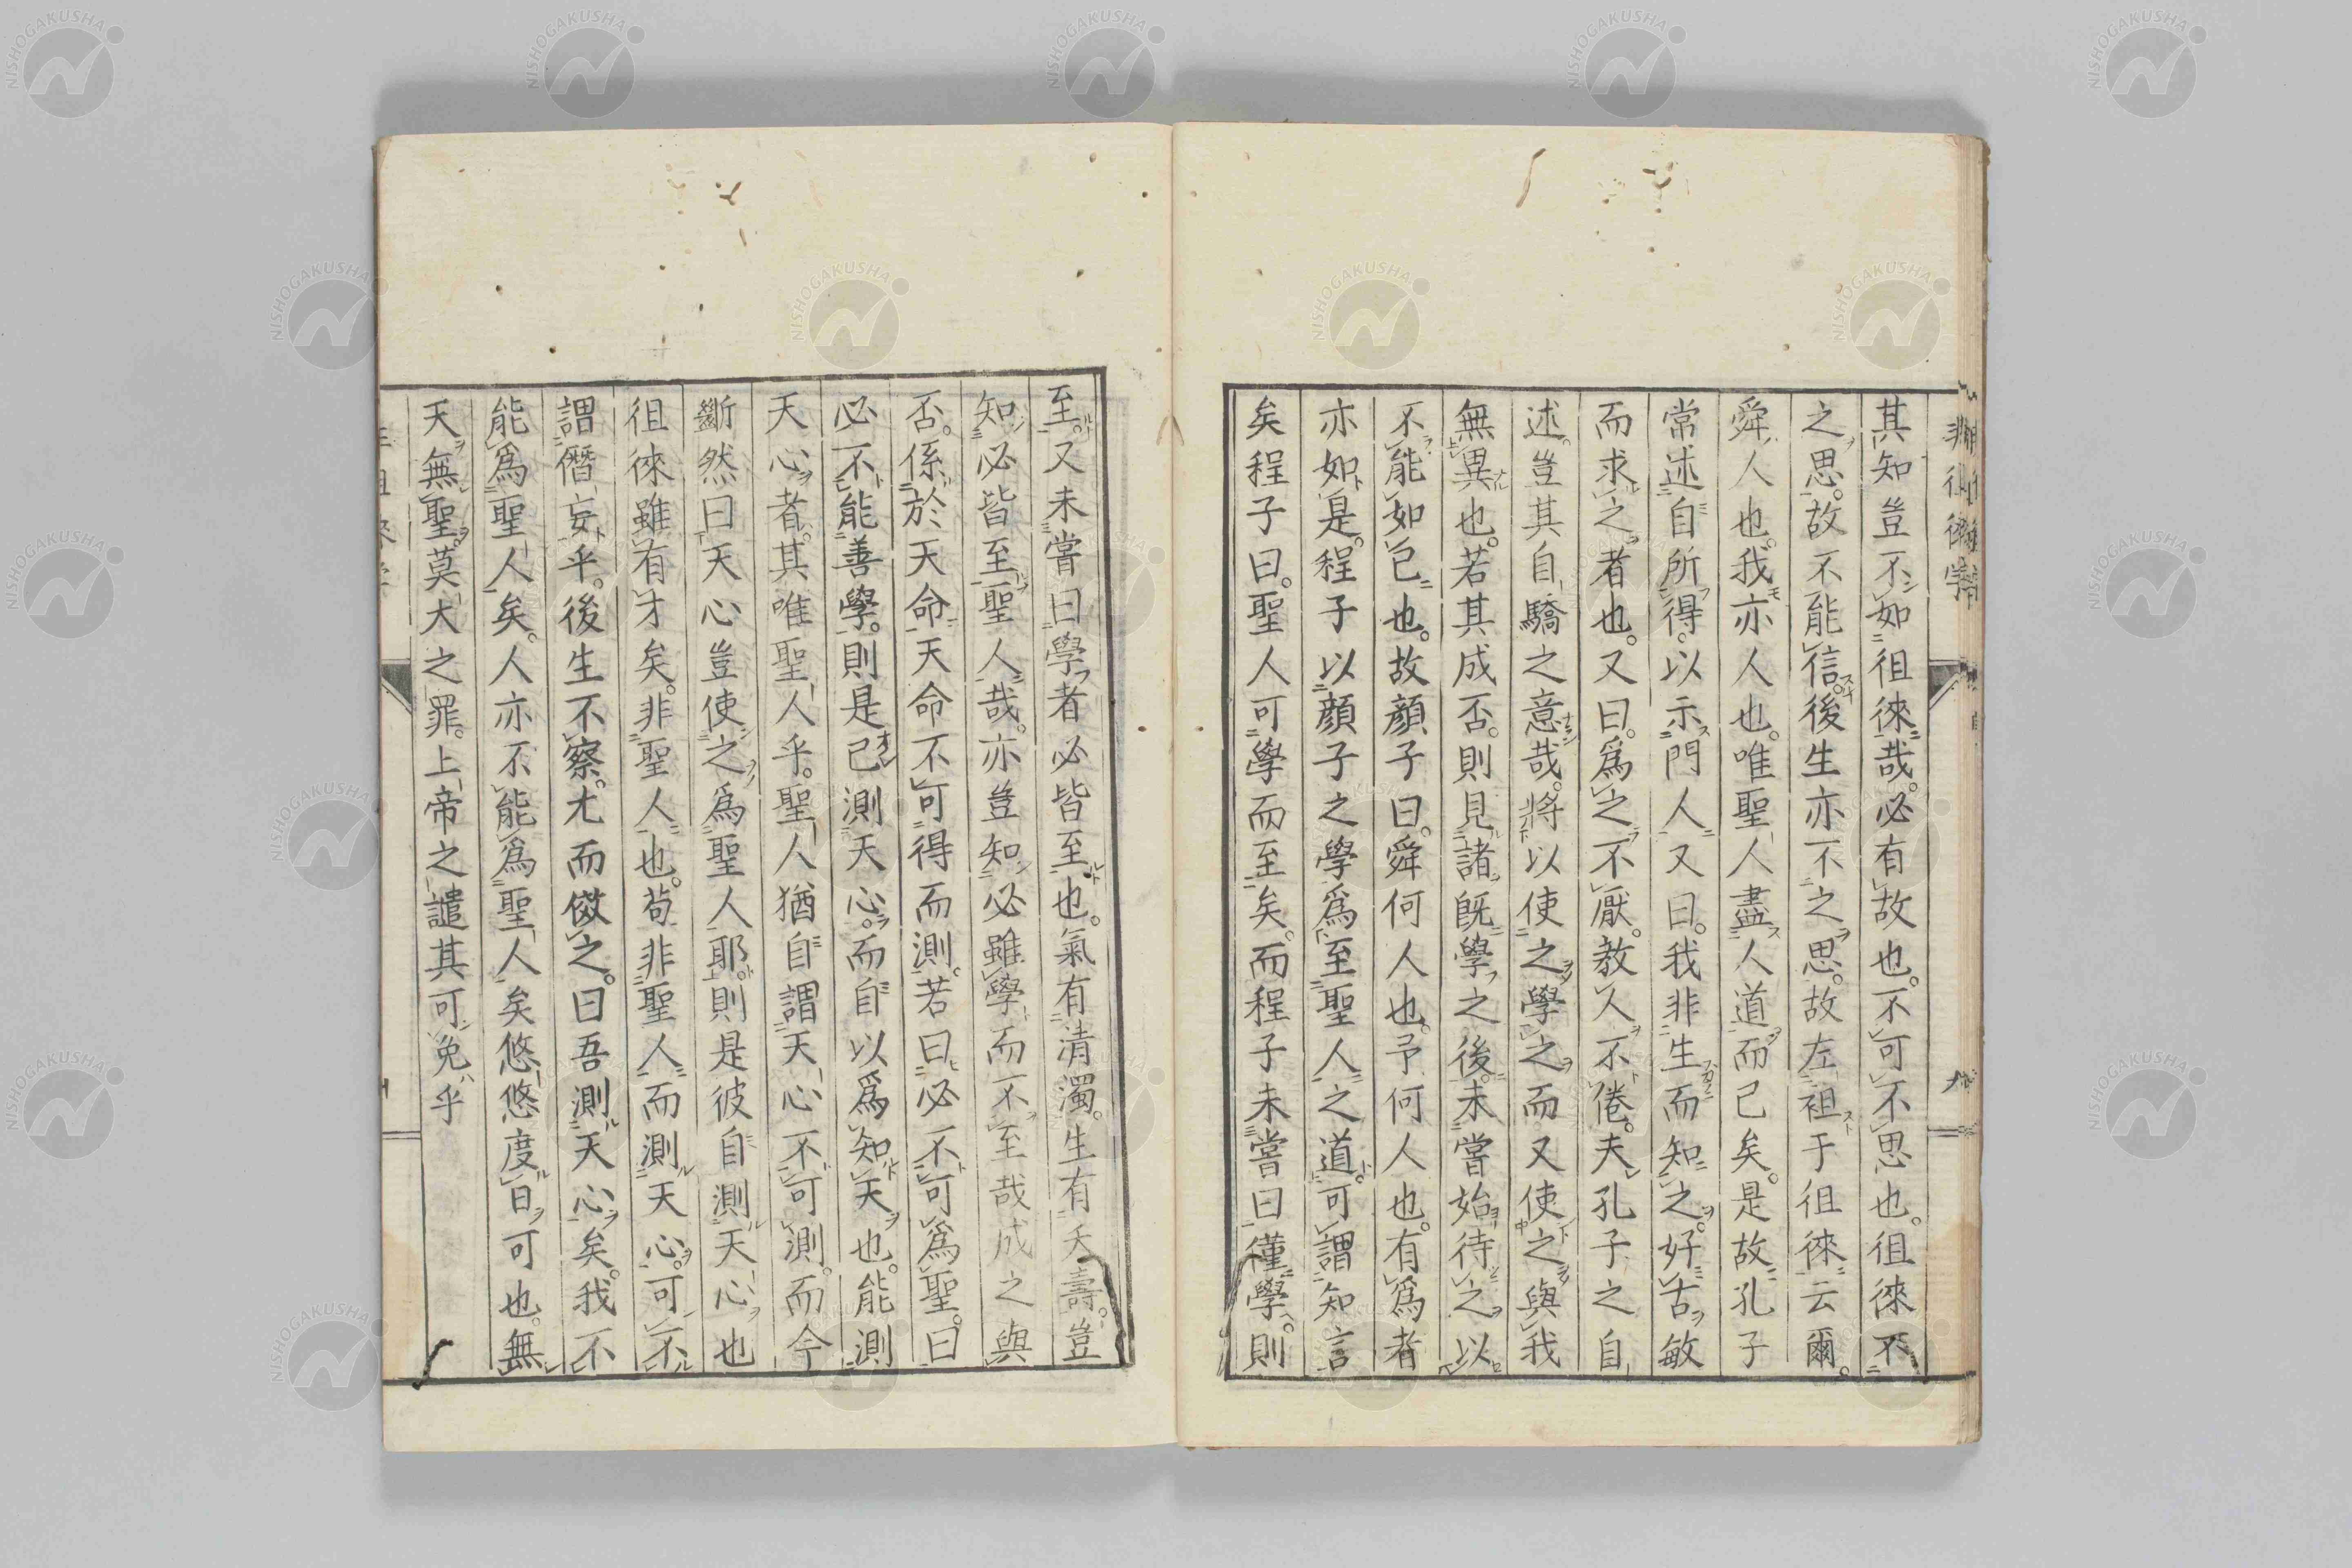 其知豈不如徂徠哉。必有故也。不可不思也。徂徠不
之思。故不能信。後生亦不之思。故左袒于徂徠云爾。
舜人也。我亦人也。唯聖人盡人道而已矣。是故孔子
常述自所得。以示門人又曰。我非生而知之。好古敏
而求之者也。又曰。爲之不厭。教人不倦。夫孔子之自
述。豈其自驕之意哉。將以使之學之而又使之與我
無異也。若其成否。則見諸既學之後。未嘗始待之以
不能如已也。故顏子曰。舜何人也。予何人也。有爲者
亦如是。程子以顏子之學爲至聖人之道。可謂知言
矣程子曰。聖人可學而至矣。而程子未嘗曰僅學。則
至。又未嘗曰學者必皆至也。氣有清濁。生有夭壽。豈
知必皆至聖人哉。亦豈知必雖學而不至哉成之與
否。係於天命天命不可得而測。若曰必不可爲聖。曰
必不能善學。則是已測天心。而自以爲知天也。能測
天心者。其唯聖人乎。聖人猶自謂天心不可測。而今
斷然曰天心豈使之爲聖人耶。則是彼自測天心也
徂徠雖有才矣。非聖人也。苟非聖人而測天心。可不
謂僭妄乎。後生不察。尤而傚之。曰吾測天心矣。我不
能爲聖人矣。人亦不能爲聖人矣悠悠度日可也。無
天無聖。莫大之罪。上帝之譴其可免乎